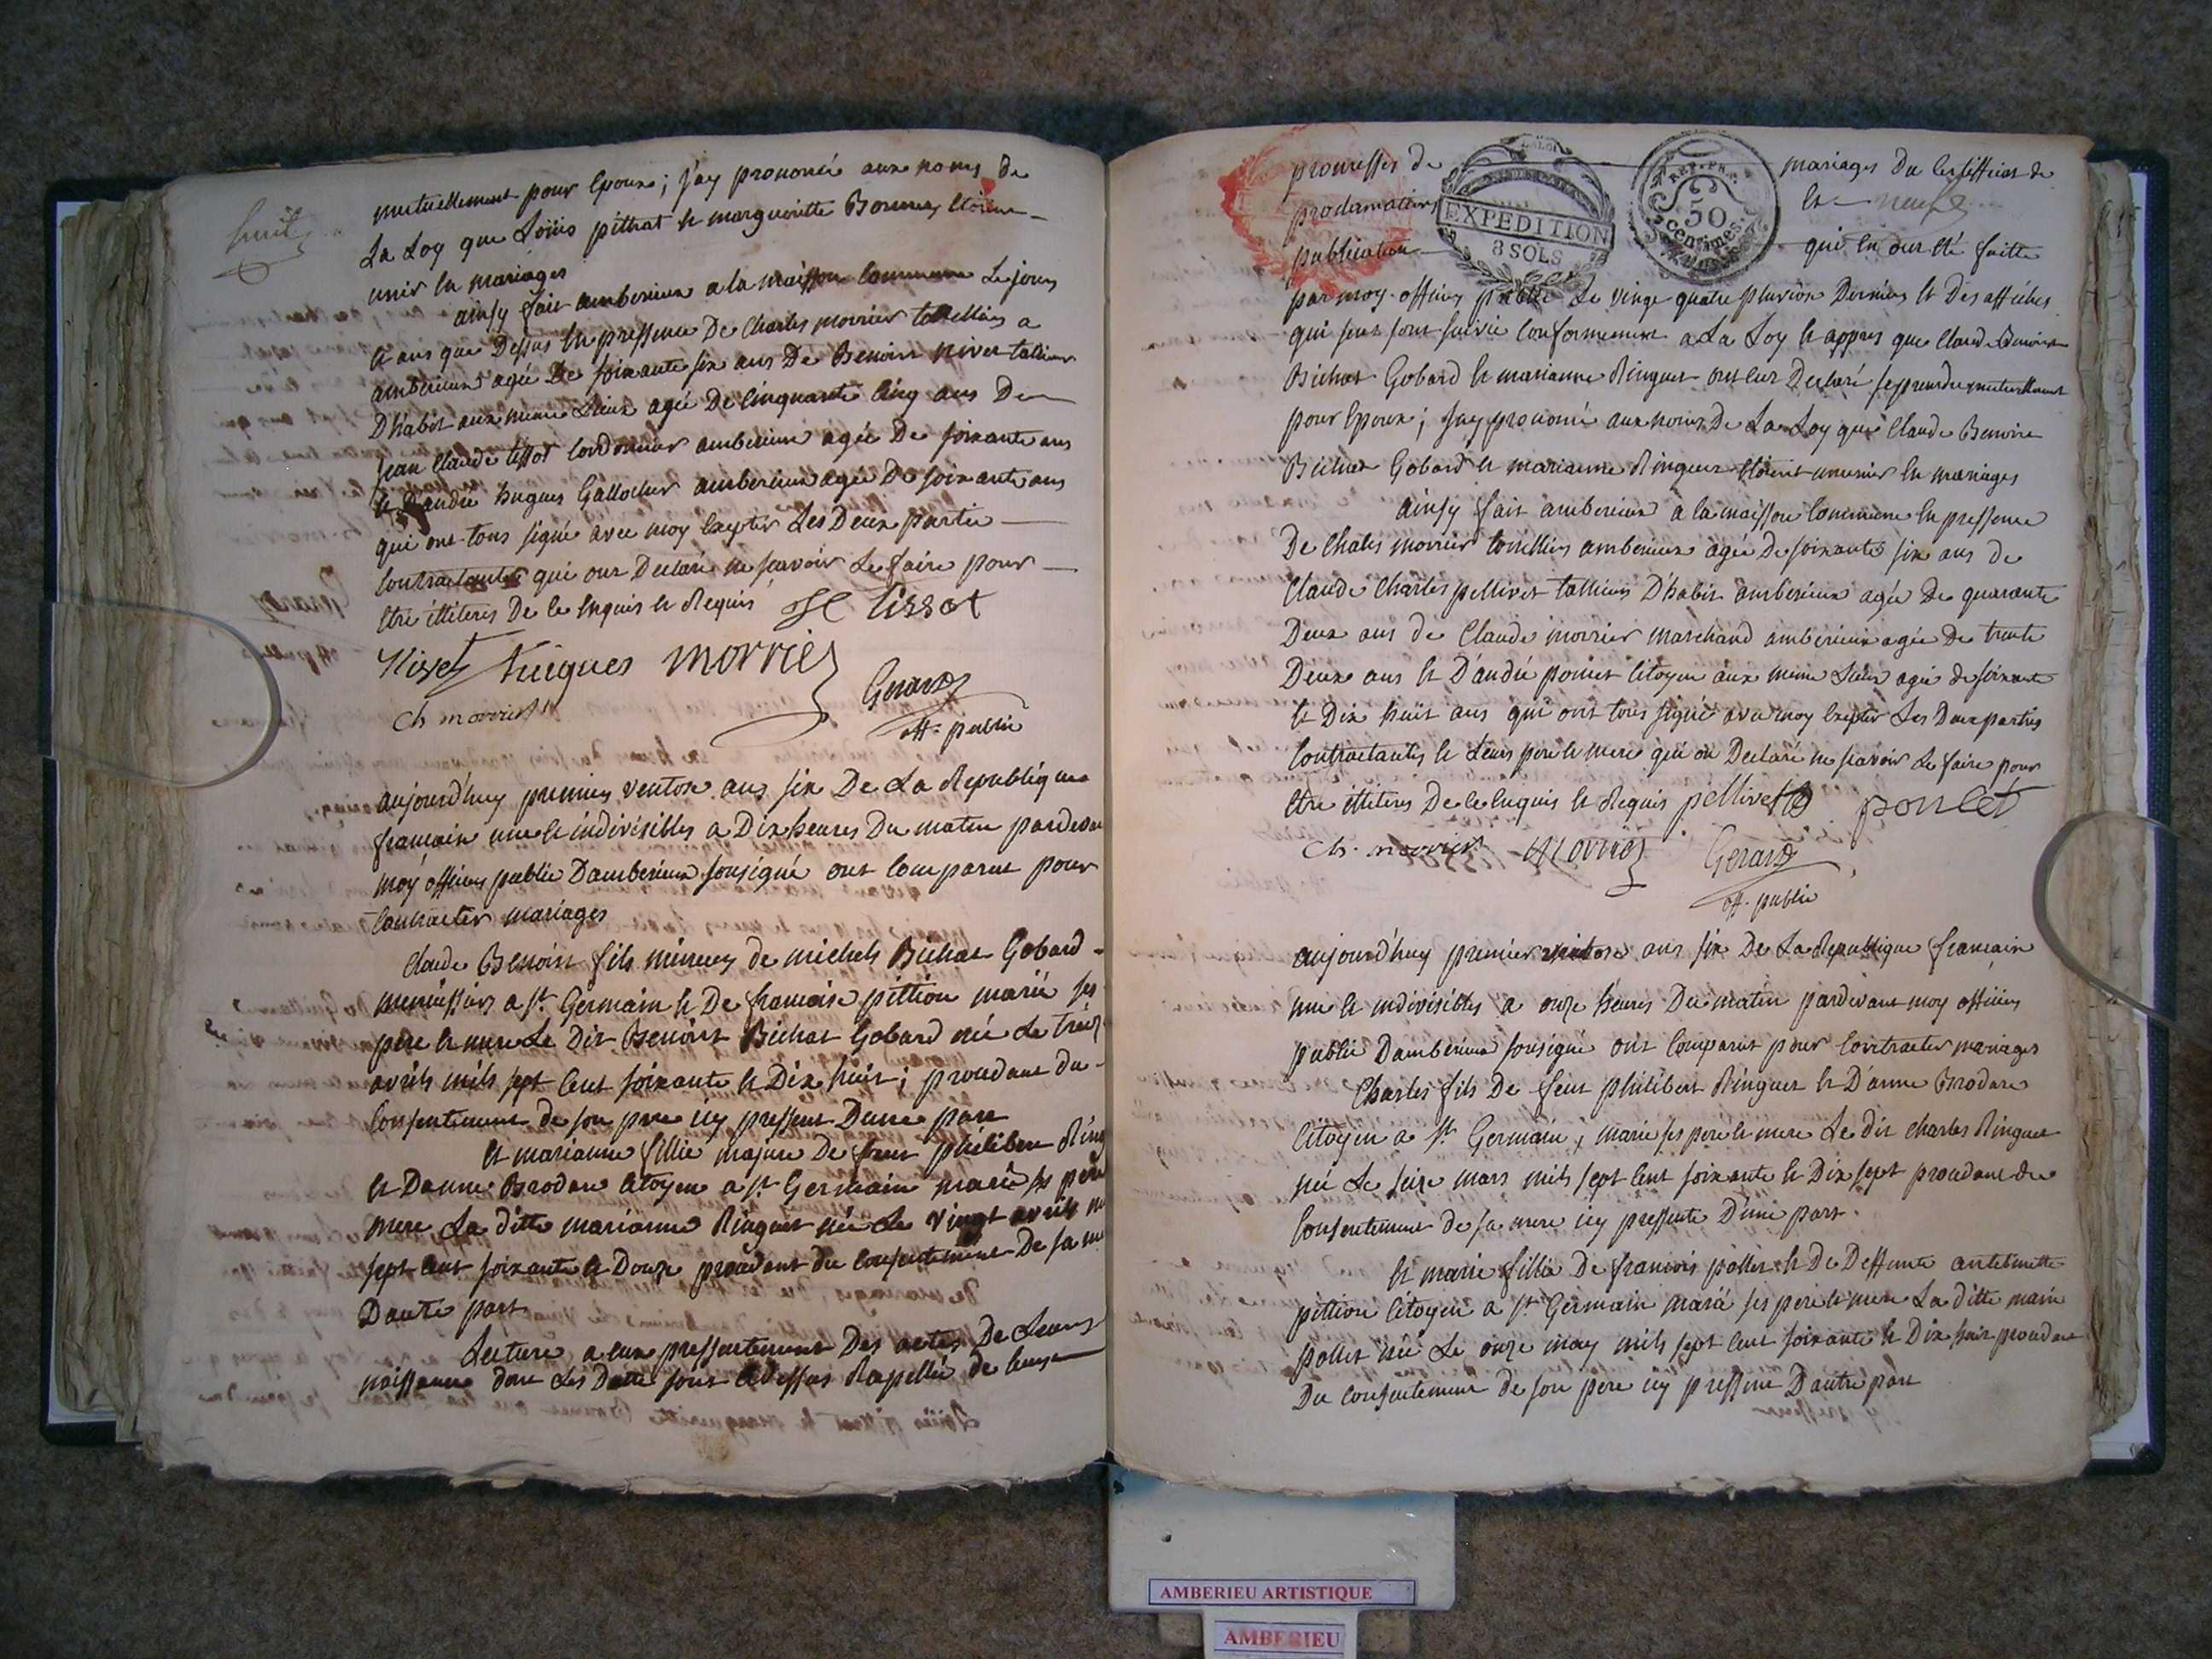 huit
mutuellement pour Epoux; j'ay prononcé aux noms de
La Loy que Loüis pittrat et margueritte Bonnes étoient
unir en mariages
ainsy fait amberieux a la maisson Commune Le jours
et ans que Dessus en pressence De Charles morrier tottellier a
amberieux agée De soixante six ans De Benoist nivet tallieur
D'habit aux meme Lieux agée De Cinquante Cinq ans De
Jean Claude tissot Cordonnier amberieux agée De soixante ans
et Dandre hugues Gallocher amberieux agée De soixante ans
qui ont tous signé avec moy Exepter Les Deux partie
Contractantes qui ont Declaré ne scavoir Le faire pour
Etre illiteres De ce Enquis et Requis JC tissot
Nivet hugues morrier
ch morrier Gerard
off. public
aujourd'huy premier ventose ans six De La Republique
francaise une et indivisibles a Dix heures Du matin pardevan
moy officier public Damberieux sousigné ont Comparut pour
Contracter mariages
Claude Benoist fils mineur de michels Bichat Gobard
menuissier a st. Germain et De francoise pittion marié ses
pere et mere Le Dit Benoist Bichat Gobard né Le treize
avrils mils sept Cent soixante et Dix huit; procedant du
Consentement de son pere icy pressent Dune part
Et marianne fillie majure De feut philibert Ring
et Danne Brodare Citoyen a st Germain marié ses pere
mere La ditte marianne Ringuet née Le vingt avrils m
sept Cent soixante et Douze procedant du Consentement De sa me
Dautre part
Lecture a eux pressentement Des actes De Leurs
naissance dont Les Datte sont Cidessus Rapellée de leurs
promesses de mariages du
proclamation et neuf
publication qui en out été faitte
par moy officier public Le vingt quatre pluviose Dernier et Des affiches
qui sont suivie Conformement a La Loy et appres que Claude Benoist
Bichat Gobard et marianne Ringuet ont Eut Declaré se prendre mutuellement
pour Epoux; j'ay prononcé aux noms De La Loy que Claude Benoist
Bichat Gobard et marianne Ringuet étoient unir en mariages
ainsy fait amberieux a la maisson Commune En pressence
De Chales morrier amberieux agée De soixante six ans de
Claude Charles pellivet tallieur D'habit amberieux agée De quarante
Deux ans de Claude morrier marchand amberieux agée De trente
Deux ans et D'andré poncet Citoyen aux meme Lieux agée de soixante
et Dix huit ans qui ont tous signé avec moy Exepter Les Deux parties
Contractantes et Leurs pere et mere qui on Declaré ne scavoir Le faire pour
Etre illiteres De ce Enquis et Requis pellivet poncet
Ch. morrier Morrier Gerard
off. public
aujourd'huy premier ventose ans six De La Republique francaise
une et indivisibles a onze heures Du matin pardevant moy officier
public Damberieux sousigné ont Comparut pour Contracter mariages
Charles fils De feut philibert Ringuet et D'anne Brodare
Citoyen a st Germain, marié ses pere et mere Le dit charles Ringuet
né Le seize mars mils sept Cent soixante et Dix sept procedant du
Consentement de sa mere icy pressente D'une part
Et marie fillie De francois pollet et De Deffunte
pittion Citoyen a st Germain marié ses pere et mere La ditte marie
pollet née Le onze may mils sept Cent soixante et Dix huit procedant
Du Consentement de son pere icy pressent Dautre part
EXPEDITION
8 SOLS
REP. FR.
50
centimes
AMBERIEU ARTISTIQUE
AMBERIEU